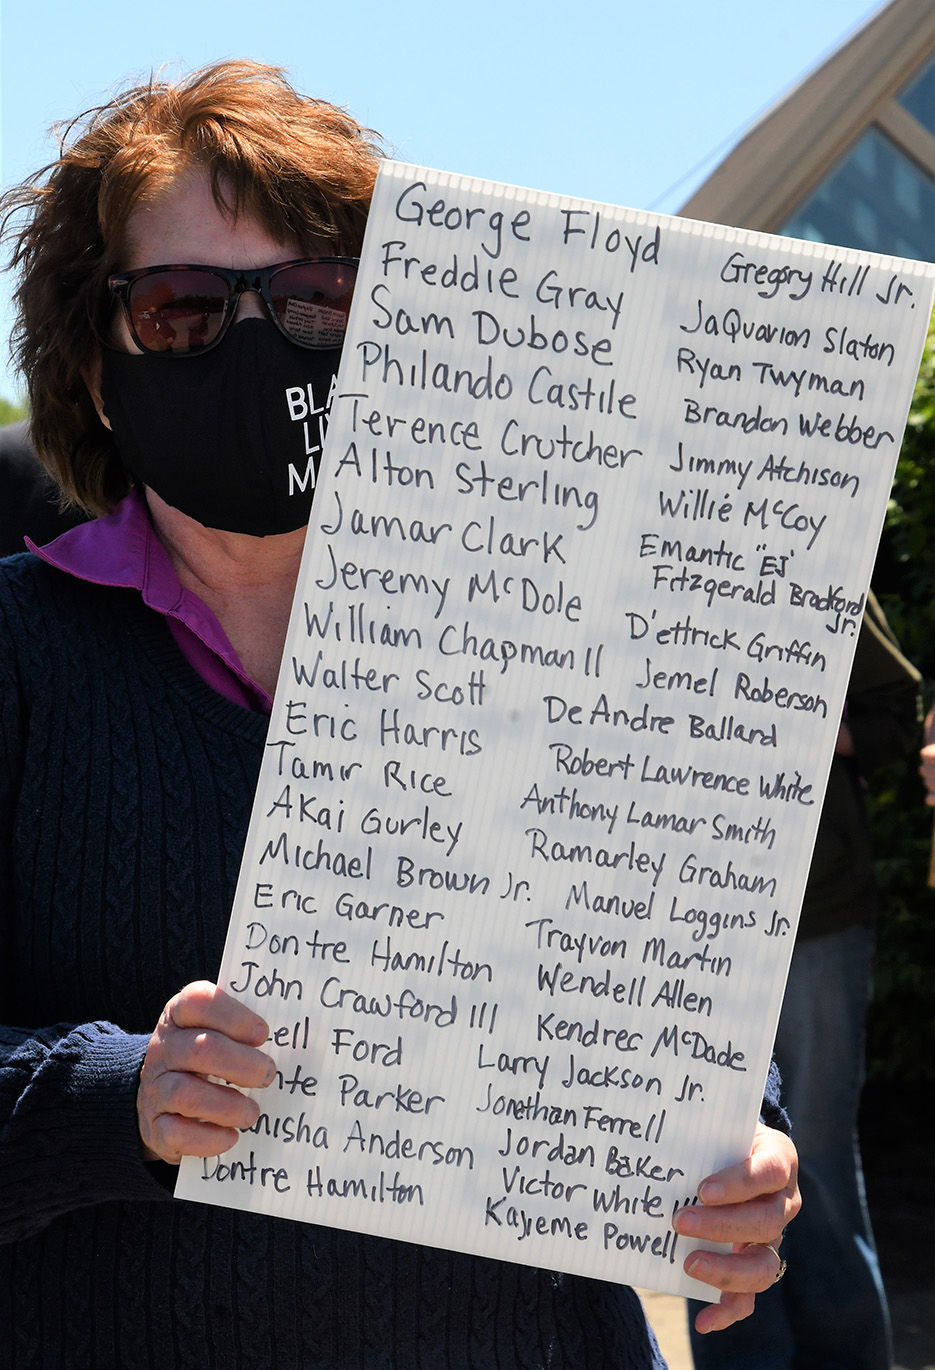 BLA
LI
MA
George Floyd
Freddie Gray
Sam Dubose
Philando Castile
Terence Crutcher
Alton Sterling
Jamar Clark
Jeremy McDole
William Chapman II
Walter Scott
Eric Harris
Tamir Rice
Akai Gurley
Michael Brown Jr.
Eric Garner
Dontre Hamilton
John Crawford III
ell Ford
nte Parker
nisha Anderson
Dontre Hamilton
Gregory Hill Jr.
JaQuavion Slaton
Ryan Twyman
Brandon Webber
Jimmy Atchison
Willie McCoy
Emantic "EJ"
Fitzgerald Bradford
Jr.
D'ettrick Griffin
Jemel Roberson
DeAndre Ballard
Robert Lawrence White
Anthony Lamar Smith
Ramarley Graham
Manuel Loggins Jr.
Trayvon Martin
Wendell Allen
Kendrec McDade
Larry Jackson Jr.
Jonathan Ferrell
Jordan Baker
Victor White III
Kajieme Powell